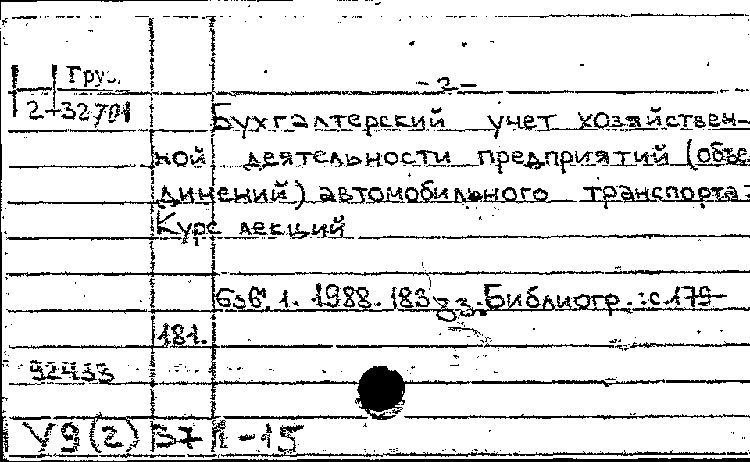 Груз.
- 2 -
2-32701
Бухгалтерский учет хозяйствен-
ной деятельности предприятий (объе
динений) автомобильного транспорта:
Курс лекций
1. 1988. 183 Библиогр.: с.179-
181.
92433
У9(2)37 1-15